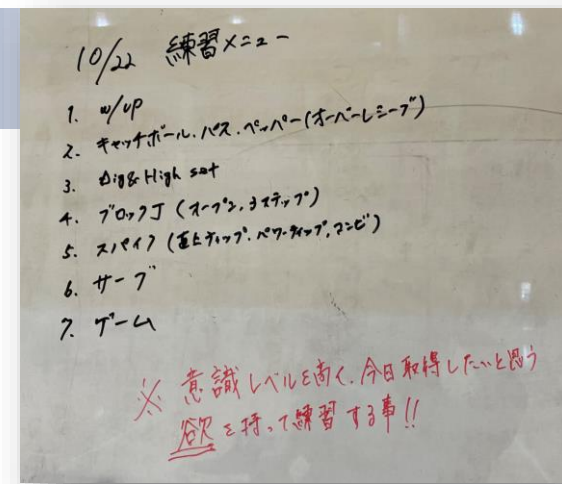 10/22 練習メニュー
1. w/up
2. キャッチボール.パス.ペッパー(オーバーレシーブ)
3. Dig & High set
4. ブロックJ (オープン,3ステップ)
5. スパイク (直上チップ.パワーチップ,コンビ)
6. サーブ
7. ゲーム
※ 意識レベルを高く.今日取得したいと思う
欲を持って練習する事!!